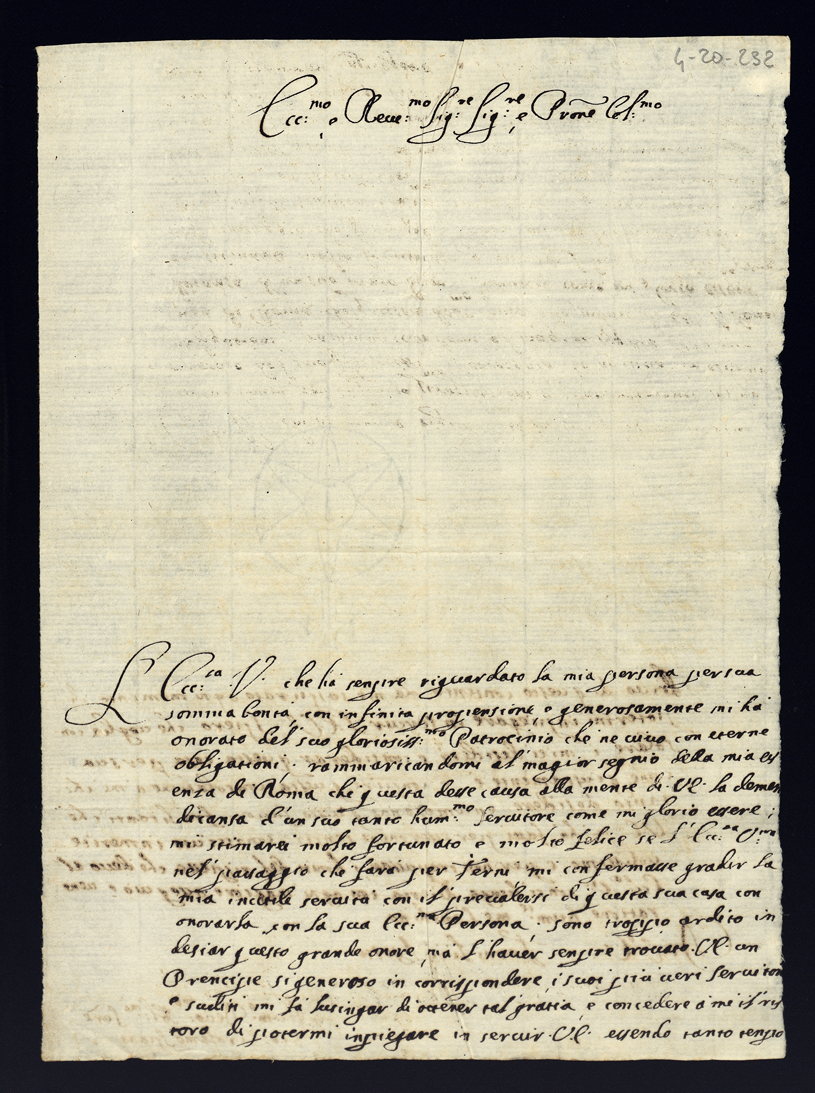 4-20-232
Ecc:mo e Reue:mo Sig:re Sig:re e Prone Col:mo
L' Ecc:za V. che ha senpre riguardato la mia persona per sua
somma bontà, con infinita propensione, e generosamente mi hà
onorato del suo gloriosiss:mo Patrocinio che ne uiuo con eterne
obligationi; rammaricandomi al magior segnio della mia es
enza di Roma che questa desse causa alla mente di V.E. la demen
dicanza d'un suo tanto hum:mo Seruitore come mi glorio essere;
mi stimarei molto fortunato e molto felice se l' Ecc:za V:ra
nel passaggio che farà per Terni mi confermasse gradir la
mia inutile seruitù con il preualersi di questa sua casa con
onorarla con la sua Ecc:ma Persona; sono troppo ardito in
desiar questo grande onore, mà l'hauer senpre trouato V.E. un
Prencipe si generoso in corrispondere i suoi più ueri seruitori
e suditi mi fà lusingar di ottener tal gratia, e concedere à me il ris
toro di potermi inpiegare in seruir V.E. essendo tanto tenpo